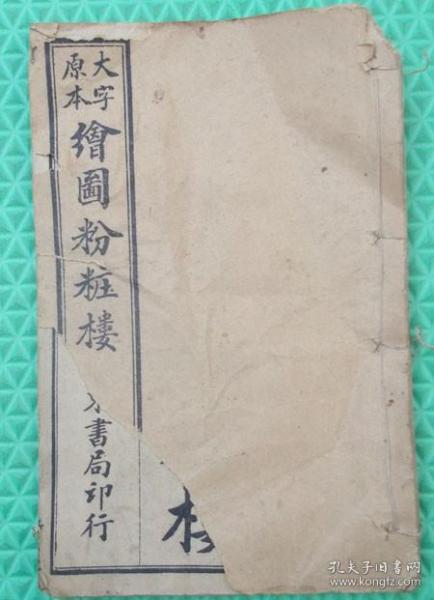 大字
原本
繪圖粉粧樓
書局印行
孔夫子旧书网
www.kongfz.com